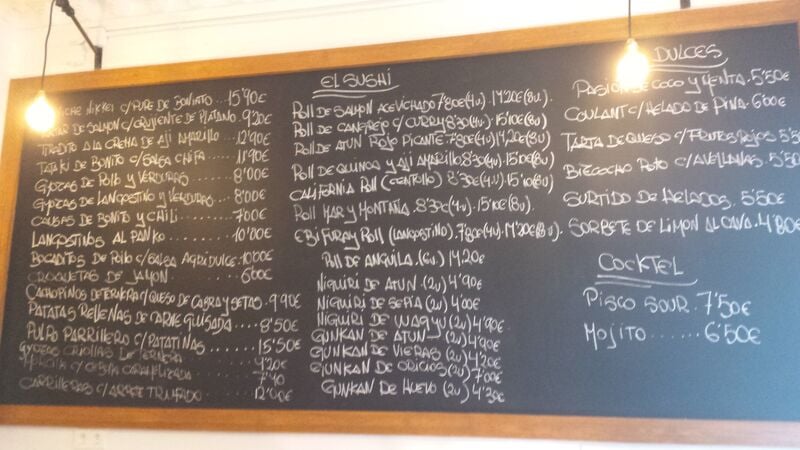 NIKKEI C/PURE DE BONIATO ... 15'90€
DE SALMON C/CRUJIENTE DE PLATANO . 9'20€
TIRADITO A LA CREMA DE AJI AMARILLO ... 12'90€
TATAKI DE BONITO C/SALSA CHIFA ... 11'90€
GYOZAS DE POLLO Y VERDURAS ..... 8'00€
GYOZAS DE LANGOSTINO Y VERDURAS . 8'00€
CAUSAS DE BONITO Y CHILI ...... 7'00€
LANGOSTINOS AL PANKO ........ 10'00€
BOCADITOS DE POLLO C/SALSA AGRIDULCE . 10'00€
CROQUETAS DE JAMON ........ 6'00€
CACHOPINOS DE TERNERA C/QUESO DE CABRA Y SETAS . 9'90€
PATATAS RELLENAS DE CARNE GUISADA .... 8'50€
PULPO PARRILLERO C/PATATINAS ...... 15'50€
GYOZAS CRIOLLAS DE TERNERA 9'20€
MORCILLA C/CEBOLLA CARAMELIZADA 7'40
CARRILLERAS C/ARROZ TRUFADO ... 12'00€
EL SUSHI
ROLL DE SALMON ACEVICHADO 7'80€(4u) . 14'20€(8u).
ROLL DE CANGREJO C/CURRY 8'30€(4u) . 15'10€(8u).
ROLL DE ATUN ROJO PICANTE 7'80€(4u) 14'20€(8u).
ROLL DE QUINOA Y AJI AMARILLO 8'30€(4u) . 15'10€(8u)
CALIFORNIA ROLL (CENTOLLO) 8'30€(4u) . 15'10(8u)
ROLL MAR Y MONTAÑA . 8'30€(4u) . 15'10€(8u).
EBI FURAY ROLL (LANGOSTINO) . 7'80€(4u) . 14'20€(8u).
ROLL DE ANGUILA (6u) 14'20€
NIGUIRI DE ATUN . (2u) 4'90€
NIGUIRI DE SEPIA (2u) 4'00€
NIGUIRI DE WAGYU (2u) 4'90€
GUNKAN DE ATUN (2u) 4'90€
GUNKAN DE VIEIRAS (2u) 4'20€
GUNKAN DE ORICIOS (2u) 7'00€
GUNKAN DE HUEVO (2u) 4'30€
DULCES
PASION DE COCO Y MENTA . 5'50€
COULANT C/HELADO DE PIÑA 6'00€
TARTA DE QUESO C/FRUTOS ROJOS . 5'50€
BIZCOCHO ROTO C/AVELLANAS . 5'50€
SURTIDO DE HELADOS . 5'50€
SORBETE DE LIMON AL CAVA . 4'80€
COCKTEL
PISCO SOUR . 7'50€
MOJITO ...... 6'50€